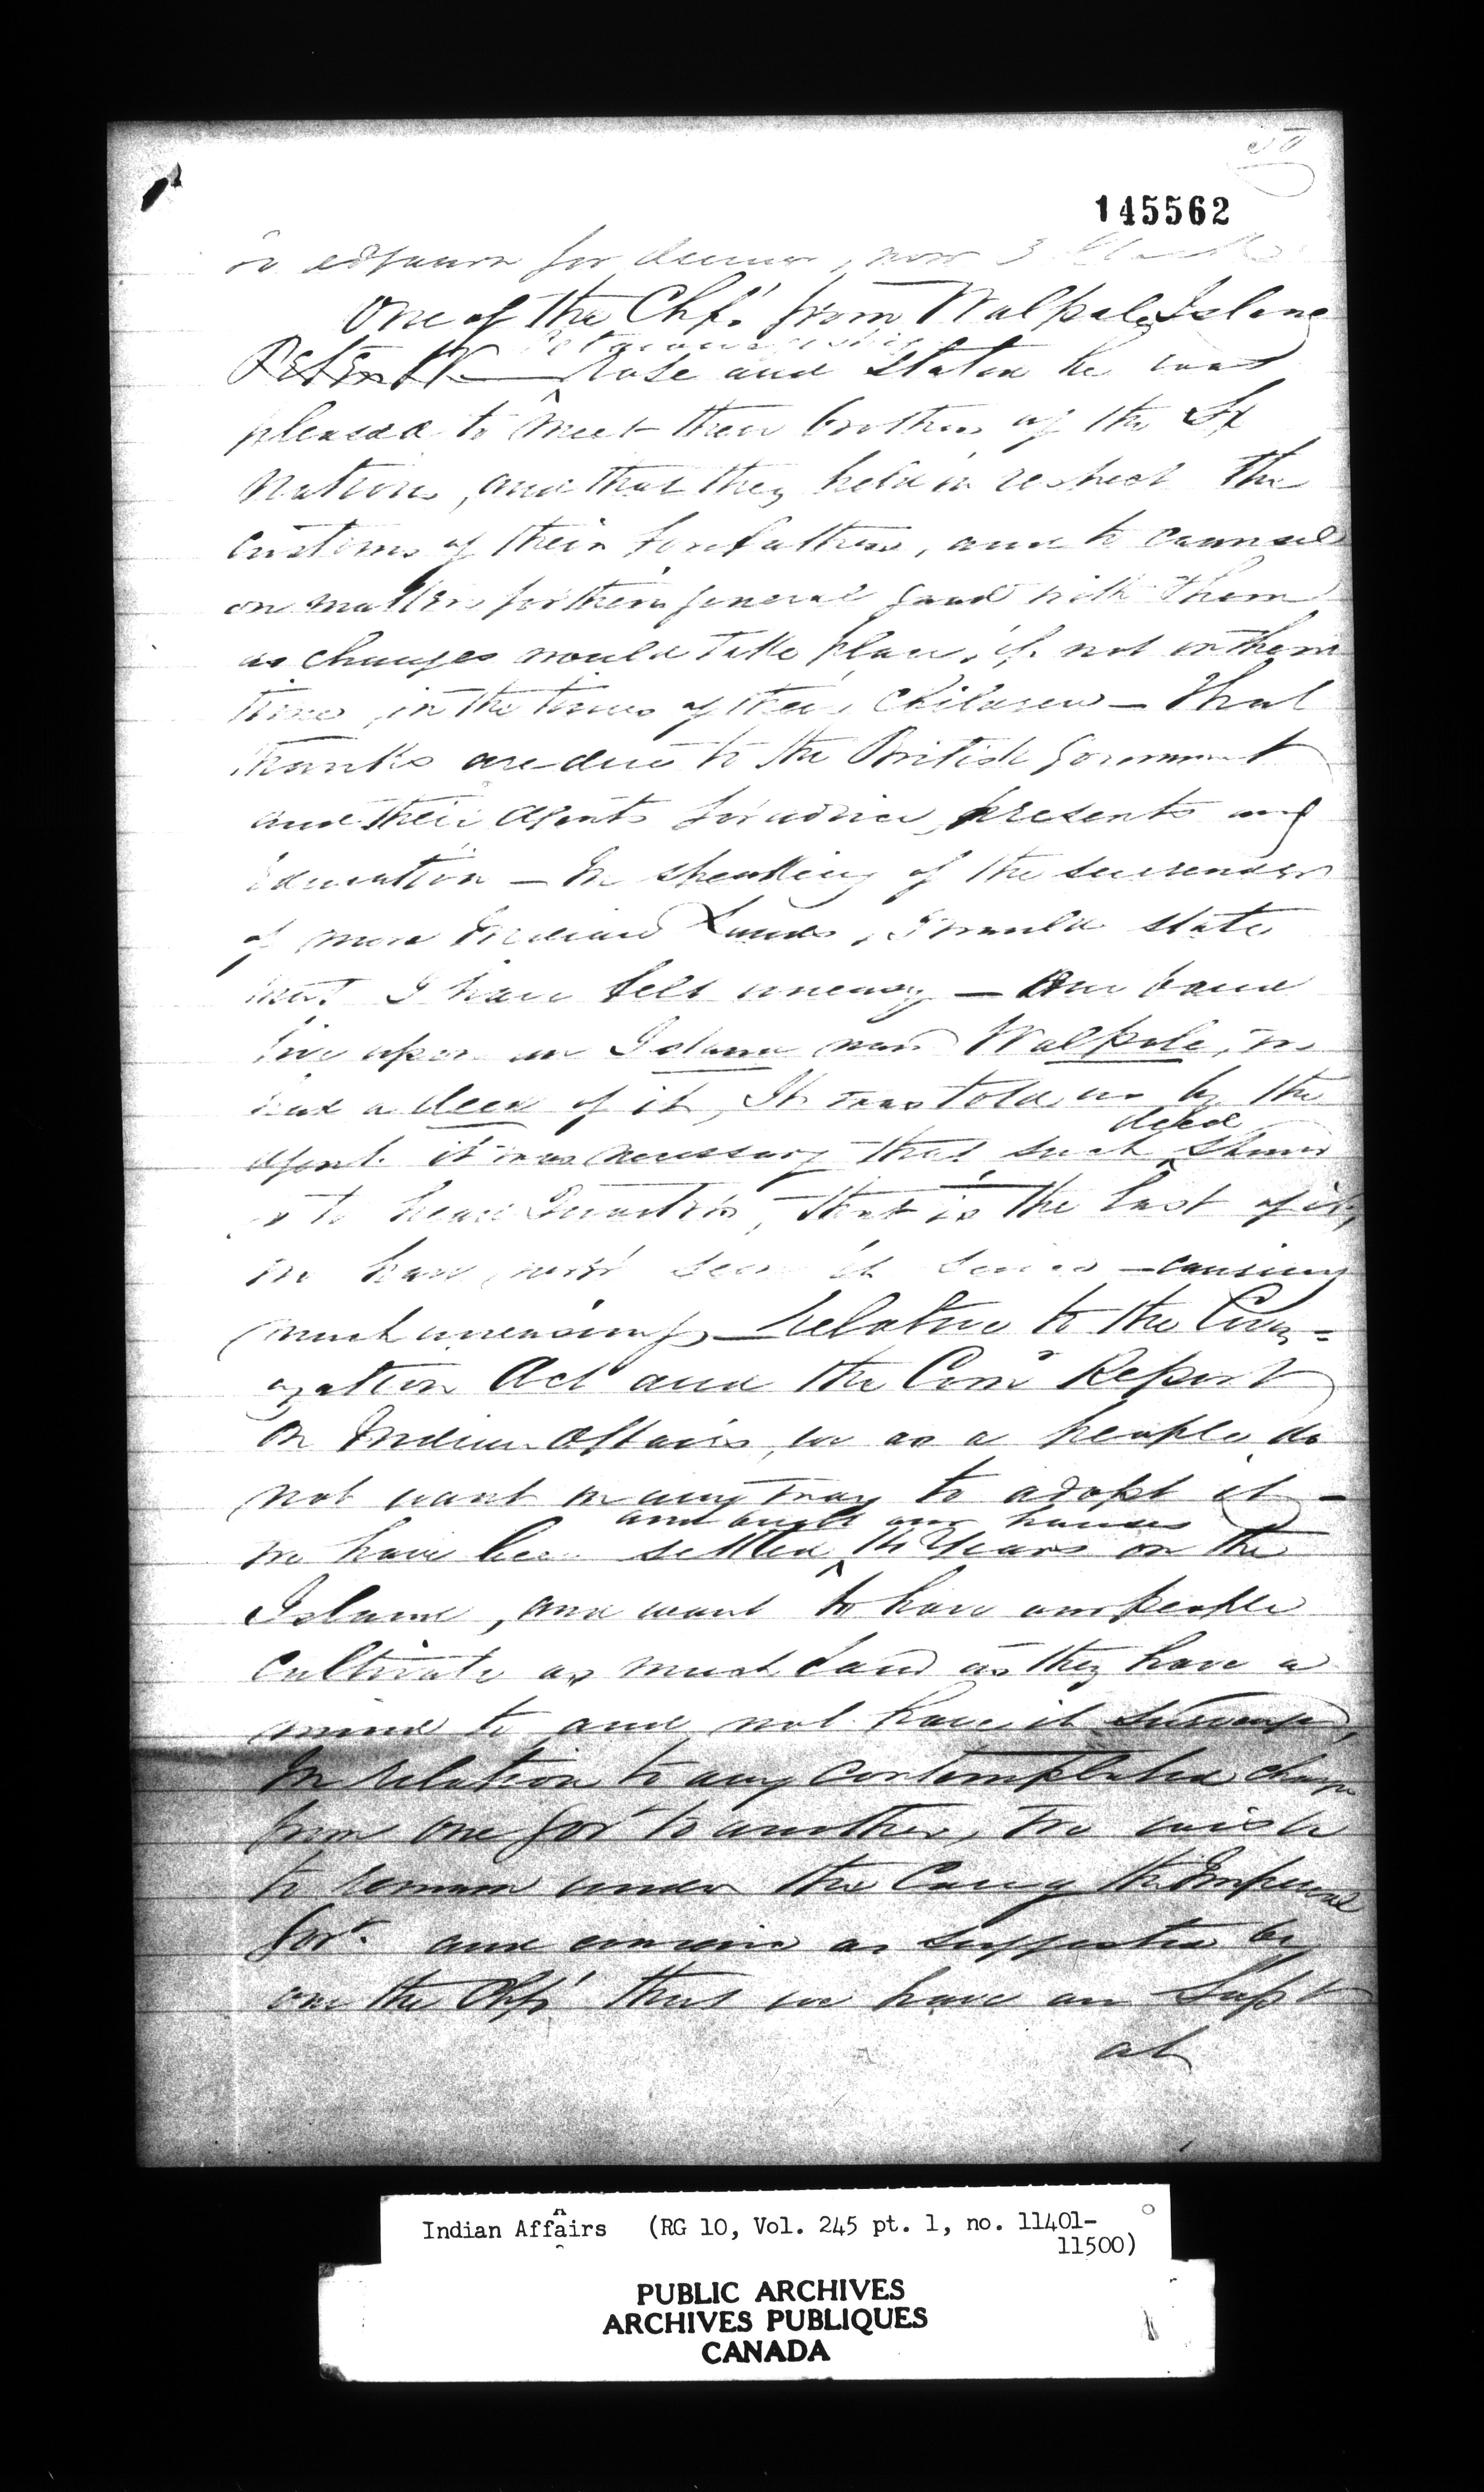 145562
to adjourn for dinner, now 3
One of the Chfs from Walpole Island
rose and stated he was
pleased to meet their brothers of the Six
Nations, and that they held in respect the
customs of their forefathers, and to counsel
on matters for their general good with them
as changes would take place, if not in their
time, in the times of their children — that
thanks are due to the British Government
and their agents for advice, presents and
Education — In speaking of the surrender
of more Indian Lands, I would state
that I have felt uneasy — Our band
live upon an Island near Walpole, we
had a deed of it, It was told us by the
deed
agent it was necessary that such should
go to head Quarters, that is the last of it,
we have not seen it since — causing
much uneasiness — Relative to the Civi=
zation Act and the Comrs Report
on Indian Affairs, we as a people do
not want in any way to adopt it —
and built our houses
we have been settled 14 Years on the
Island, and want to have our people
cultivate as much Land as they have a
mind to and not have it
In relation to any contemplated change
from one Govt to another, we wish
to remain under the Care of the Imperial
Govt. and as suggested by
one the Chfs that we have an Supt
at
Indian Affairs (RG 10, Vol. 245 pt. 1, no. 11401-
11500)
PUBLIC ARCHIVES
ARCHIVES PUBLIQUES
CANADA